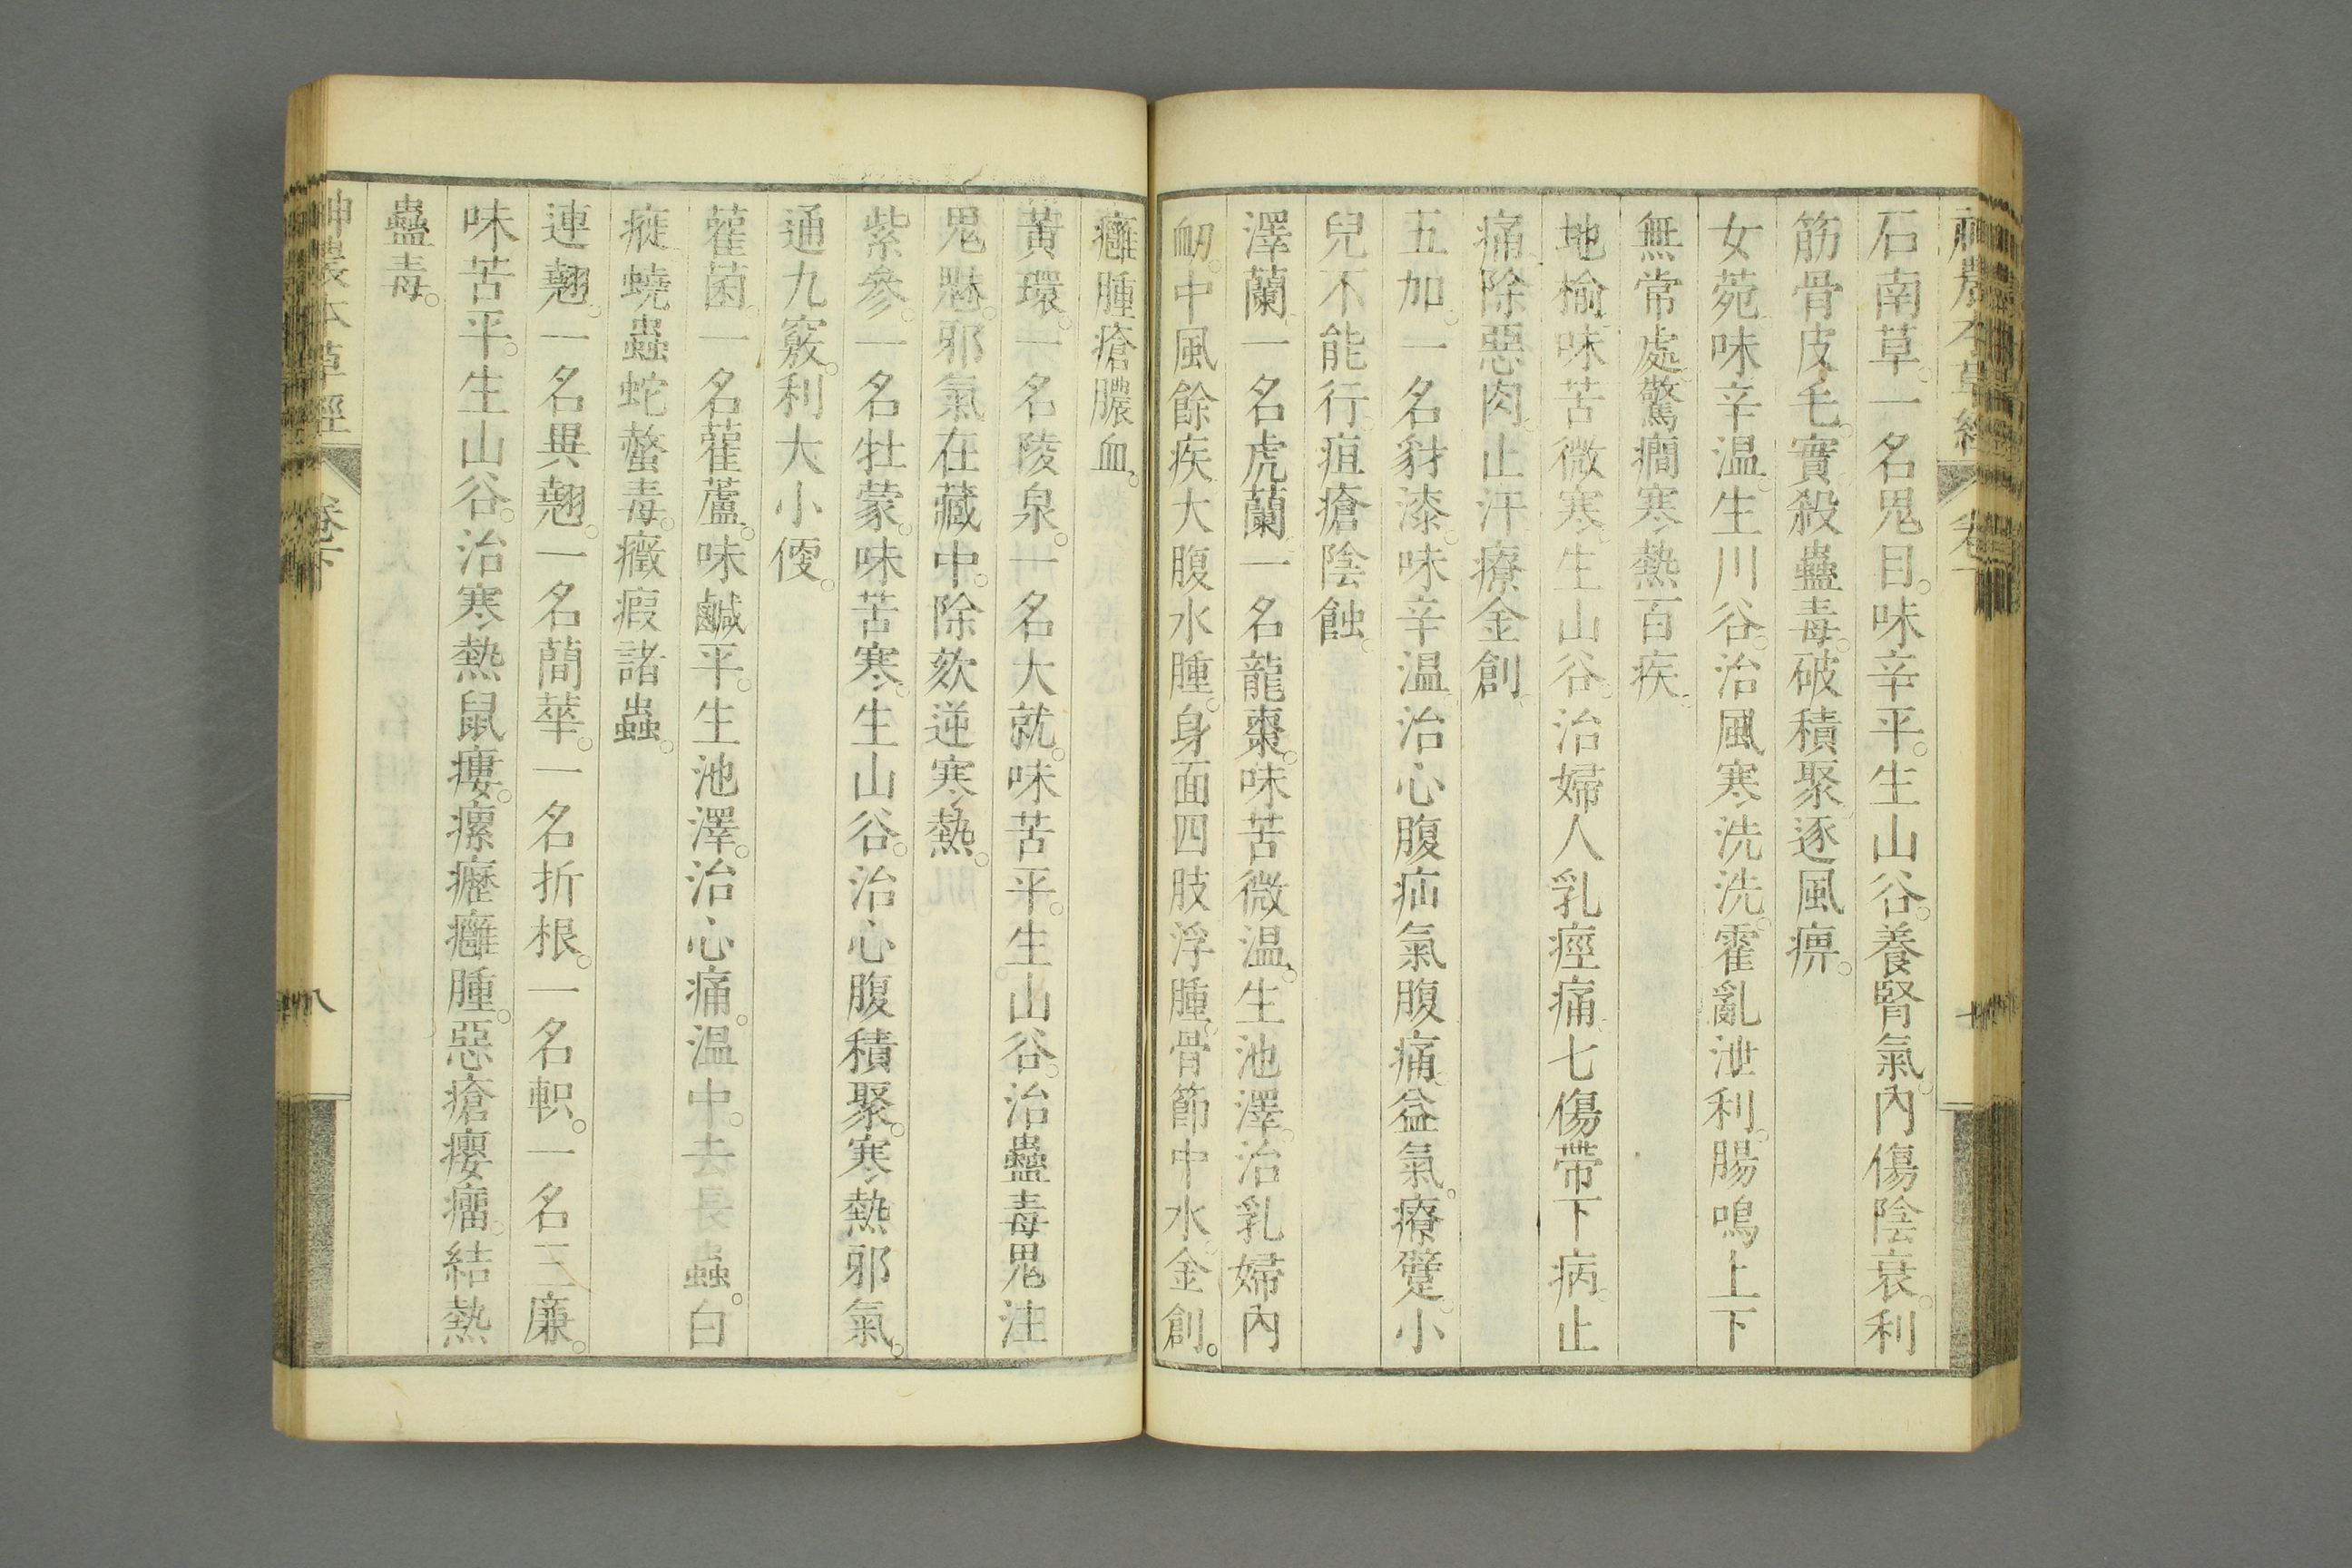 石南草。一名鬼目。味辛平。生山谷。養腎氣。內傷陰衰。利
筋骨皮毛。實殺蠱毒。破積聚。逐風痹。
女菀。味辛温。生川谷。治風寒洗洗。霍亂泄利。腸鳴上下
無常處。驚癎寒熱百疾。
地榆。味苦微寒。生山谷。治婦人乳痙痛。七傷帶下病。止
痛。除惡肉。止汗。療金創。
五加。一名豺漆。味辛温。治心腹疝氣腹痛。益氣。療躄。小
兒不能行。疽瘡陰蝕。
澤蘭。一名虎蘭。一名龍棗。味苦微温。生池澤。治乳婦內
衂。中風餘疾。大腹水腫。身面四肢浮腫。骨節中水。金創。
癰腫瘡膿血。
黃環。一名陵泉。一名大就。味苦平。生山谷。治蠱毒鬼注
鬼魅。邪氣在藏中。除欬逆寒熱。
紫參。一名牡蒙。味苦寒。生山谷。治心腹積聚。寒熱邪氣。
通九竅。利大小便。
雚菌。一名雚蘆。味鹹平。生池澤。治心痛。温中。去長蟲。白
㾨蟯蟲蛇螫毒。癥瘕諸蟲。
連翹。一名異翹。一名蘭華。一名折根。一名軹。一名三廉。
味苦平。生山谷。治寒熱鼠瘻。瘰癧癰腫。惡瘡癭瘤。結熱
蠱毒。
神農本草經
卷下
八